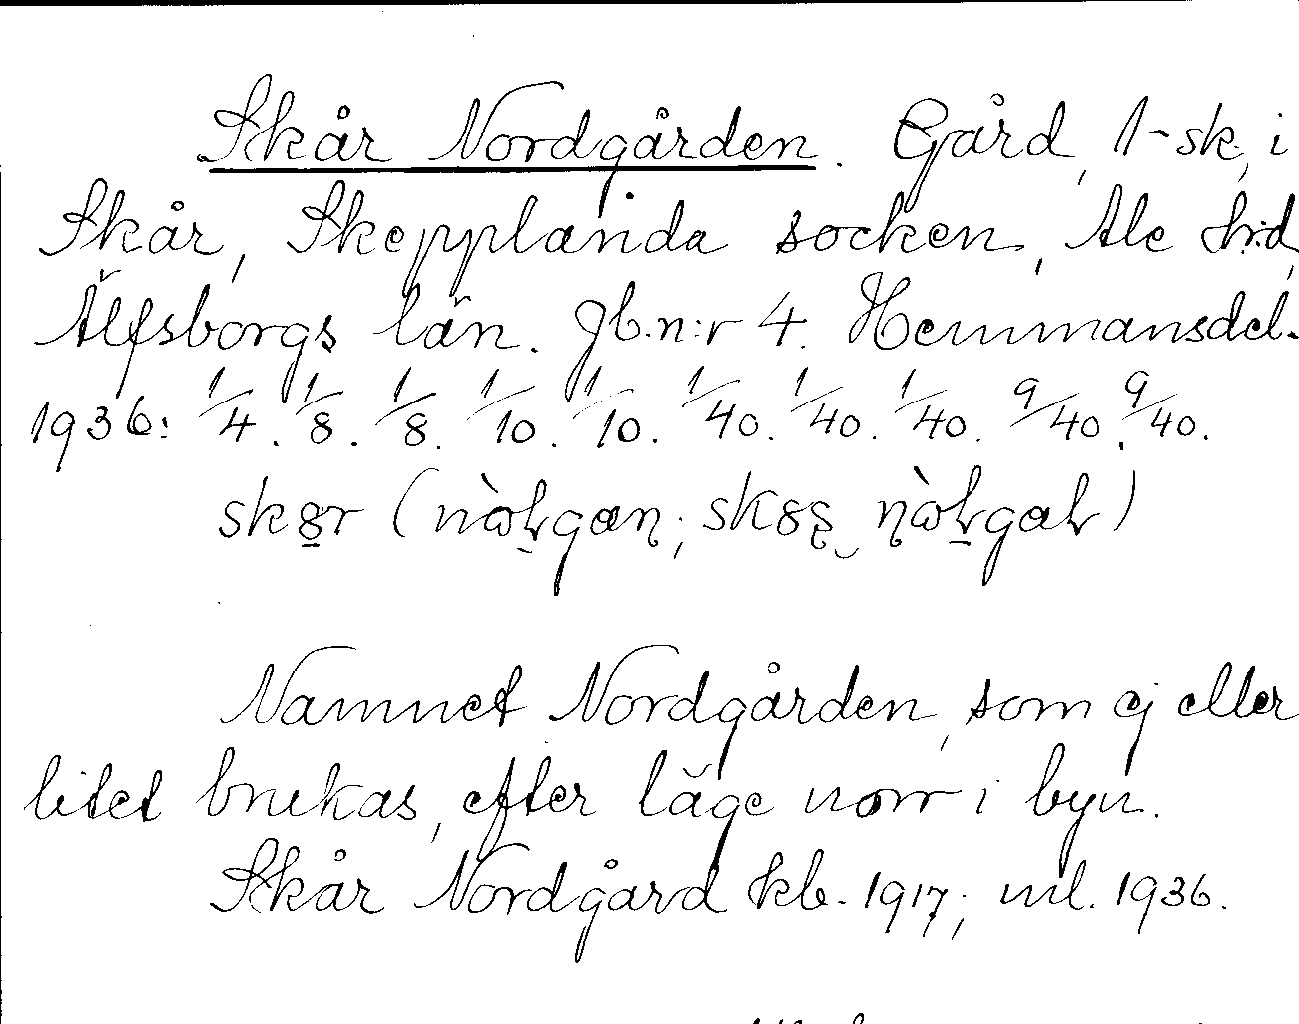 Skår Nordgården. Gård, 1-sk, i
Skår, Skepplanda socken, Ale h:d,
Älfsborgs län. Jb.n:r 4. Hemmansdel.
1936: 1/4. 1/8. 1/8. 1/10. 1/10. 1/40. 1/40. 1/40. 9/40. 9/40.
Namnet Nordgården, som ej eller
litet brukas, efter läge norr i byn.
Skår Nordgård kb. 1917; ml. 1936.